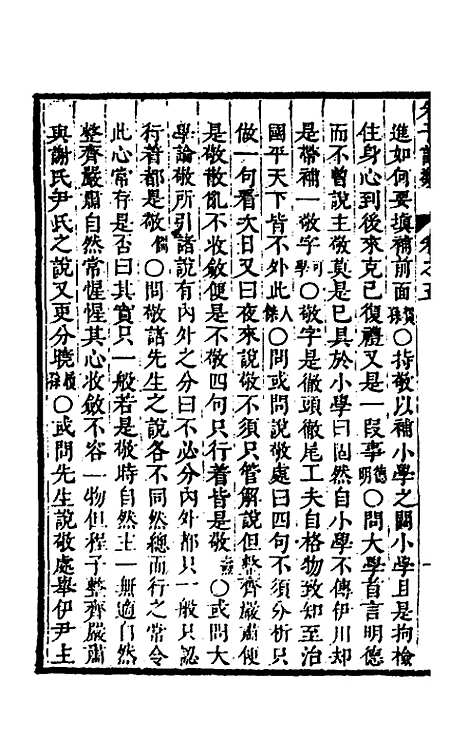 進如何要填補前面○持敬以補小學之闕小學且是拘檢
住身心到後來克己復禮又是一段事德明○問大學首言明德
而不曾說主敬莫是已具於小學曰固然自小學不傳伊川却
是帶補一敬字可學○敬字是徹頭徹尾工夫自格物致知至治
國平天下皆不外此人傑○問或問說敬處曰四句不須分析只
做一句看次日又曰夜來說敬不須只管解說但整齊嚴肅便
是敬散亂不收斂便是不敬四句只行着皆是敬○或問大
學論敬所引諸說有內外之分曰不必分內外都只一般只認
行着都是敬僩○問敬諸先生之說各不同然總而行之常令
此心常存是否曰其實只一般若是敬時自然主一無適自然
整齊嚴肅自然常惺惺其心收斂不容一物但程子整齊嚴肅
與謝氏尹氏之說又更分曉○或問先生說敬處舉伊尹主